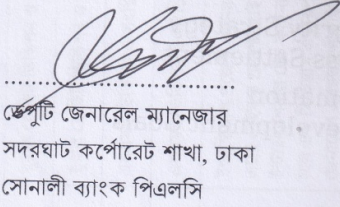 ডেপুটি জেনারেল ম্যানেজার
সদরঘাট কর্পোরেট শাখা, ঢাকা
সোনালী ব্যাংক পিএলসি